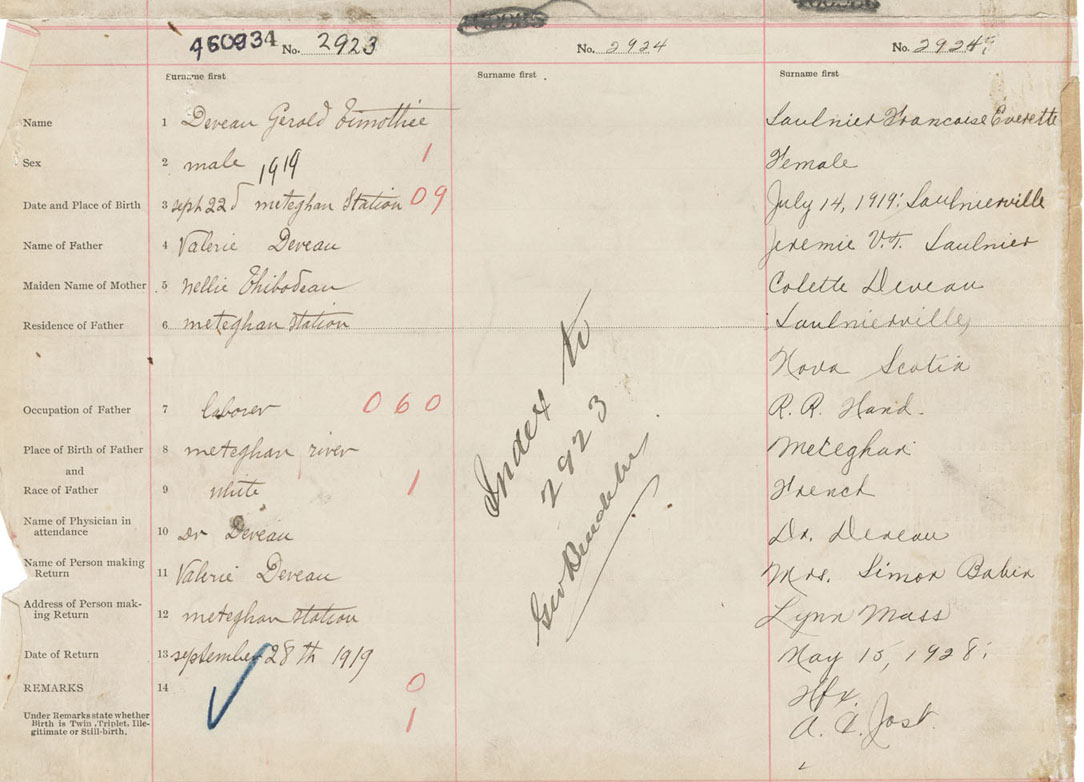 450934 No. 2923 No. 2924 No. 2924
Surname first Surname first Surname first
Name 1 Deveau Gerald Timothie Saulnier Francoise Everette
Sex 2 male 1919 1 Female
Date and Place of Birth 3 sept 22d meteghan Station 09 July 14, 1919: Saulnierville
Name of Father 4 Valerie Deveau Jeremie V.T. Saulnier
Maiden Name of Mother 5 Nellie Thibodeau Colette Deveau
Residence of Father 6 meteghan station Saulnierville,
Nova Scotia
Occupation of Father 7 laborer 060 R. R. Hand.
Place of Birth of Father 8 meteghan river Meteghan
and
Race of Father 9 white 1 French
Name of Physician in
attendance 10 Dr Deveau Dr. Deveau
Name of Person making
Return 11 Valerie Deveau Mrs. Simon Babin
Address of Person mak-
ing Return 12 meteghan station Lynn Mass
Date of Return 13 september 28th 1919 May 15, 1928:
REMARKS 14 0 Hfx.
Under Remarks state whether
Birth is Twin, Triplet, Ille-
gitimate or Still-birth. 1 A. E. Jost.
Index to
2923
Geo